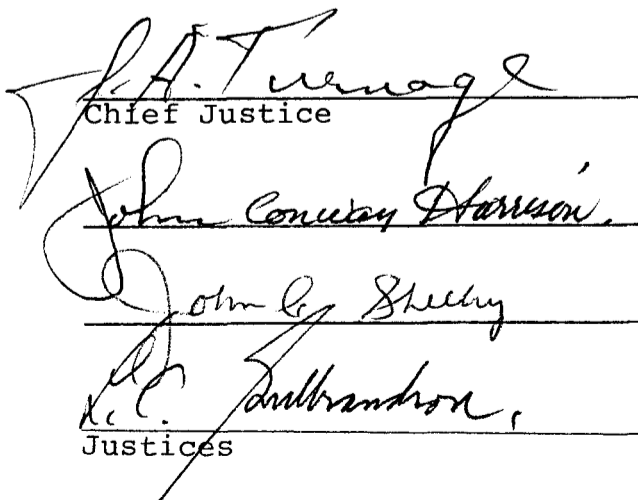 J. A. Turnage
Chief Justice
John Conway Harrison.
John C. Sheehy
L. C. Gulbrandson,
Justices